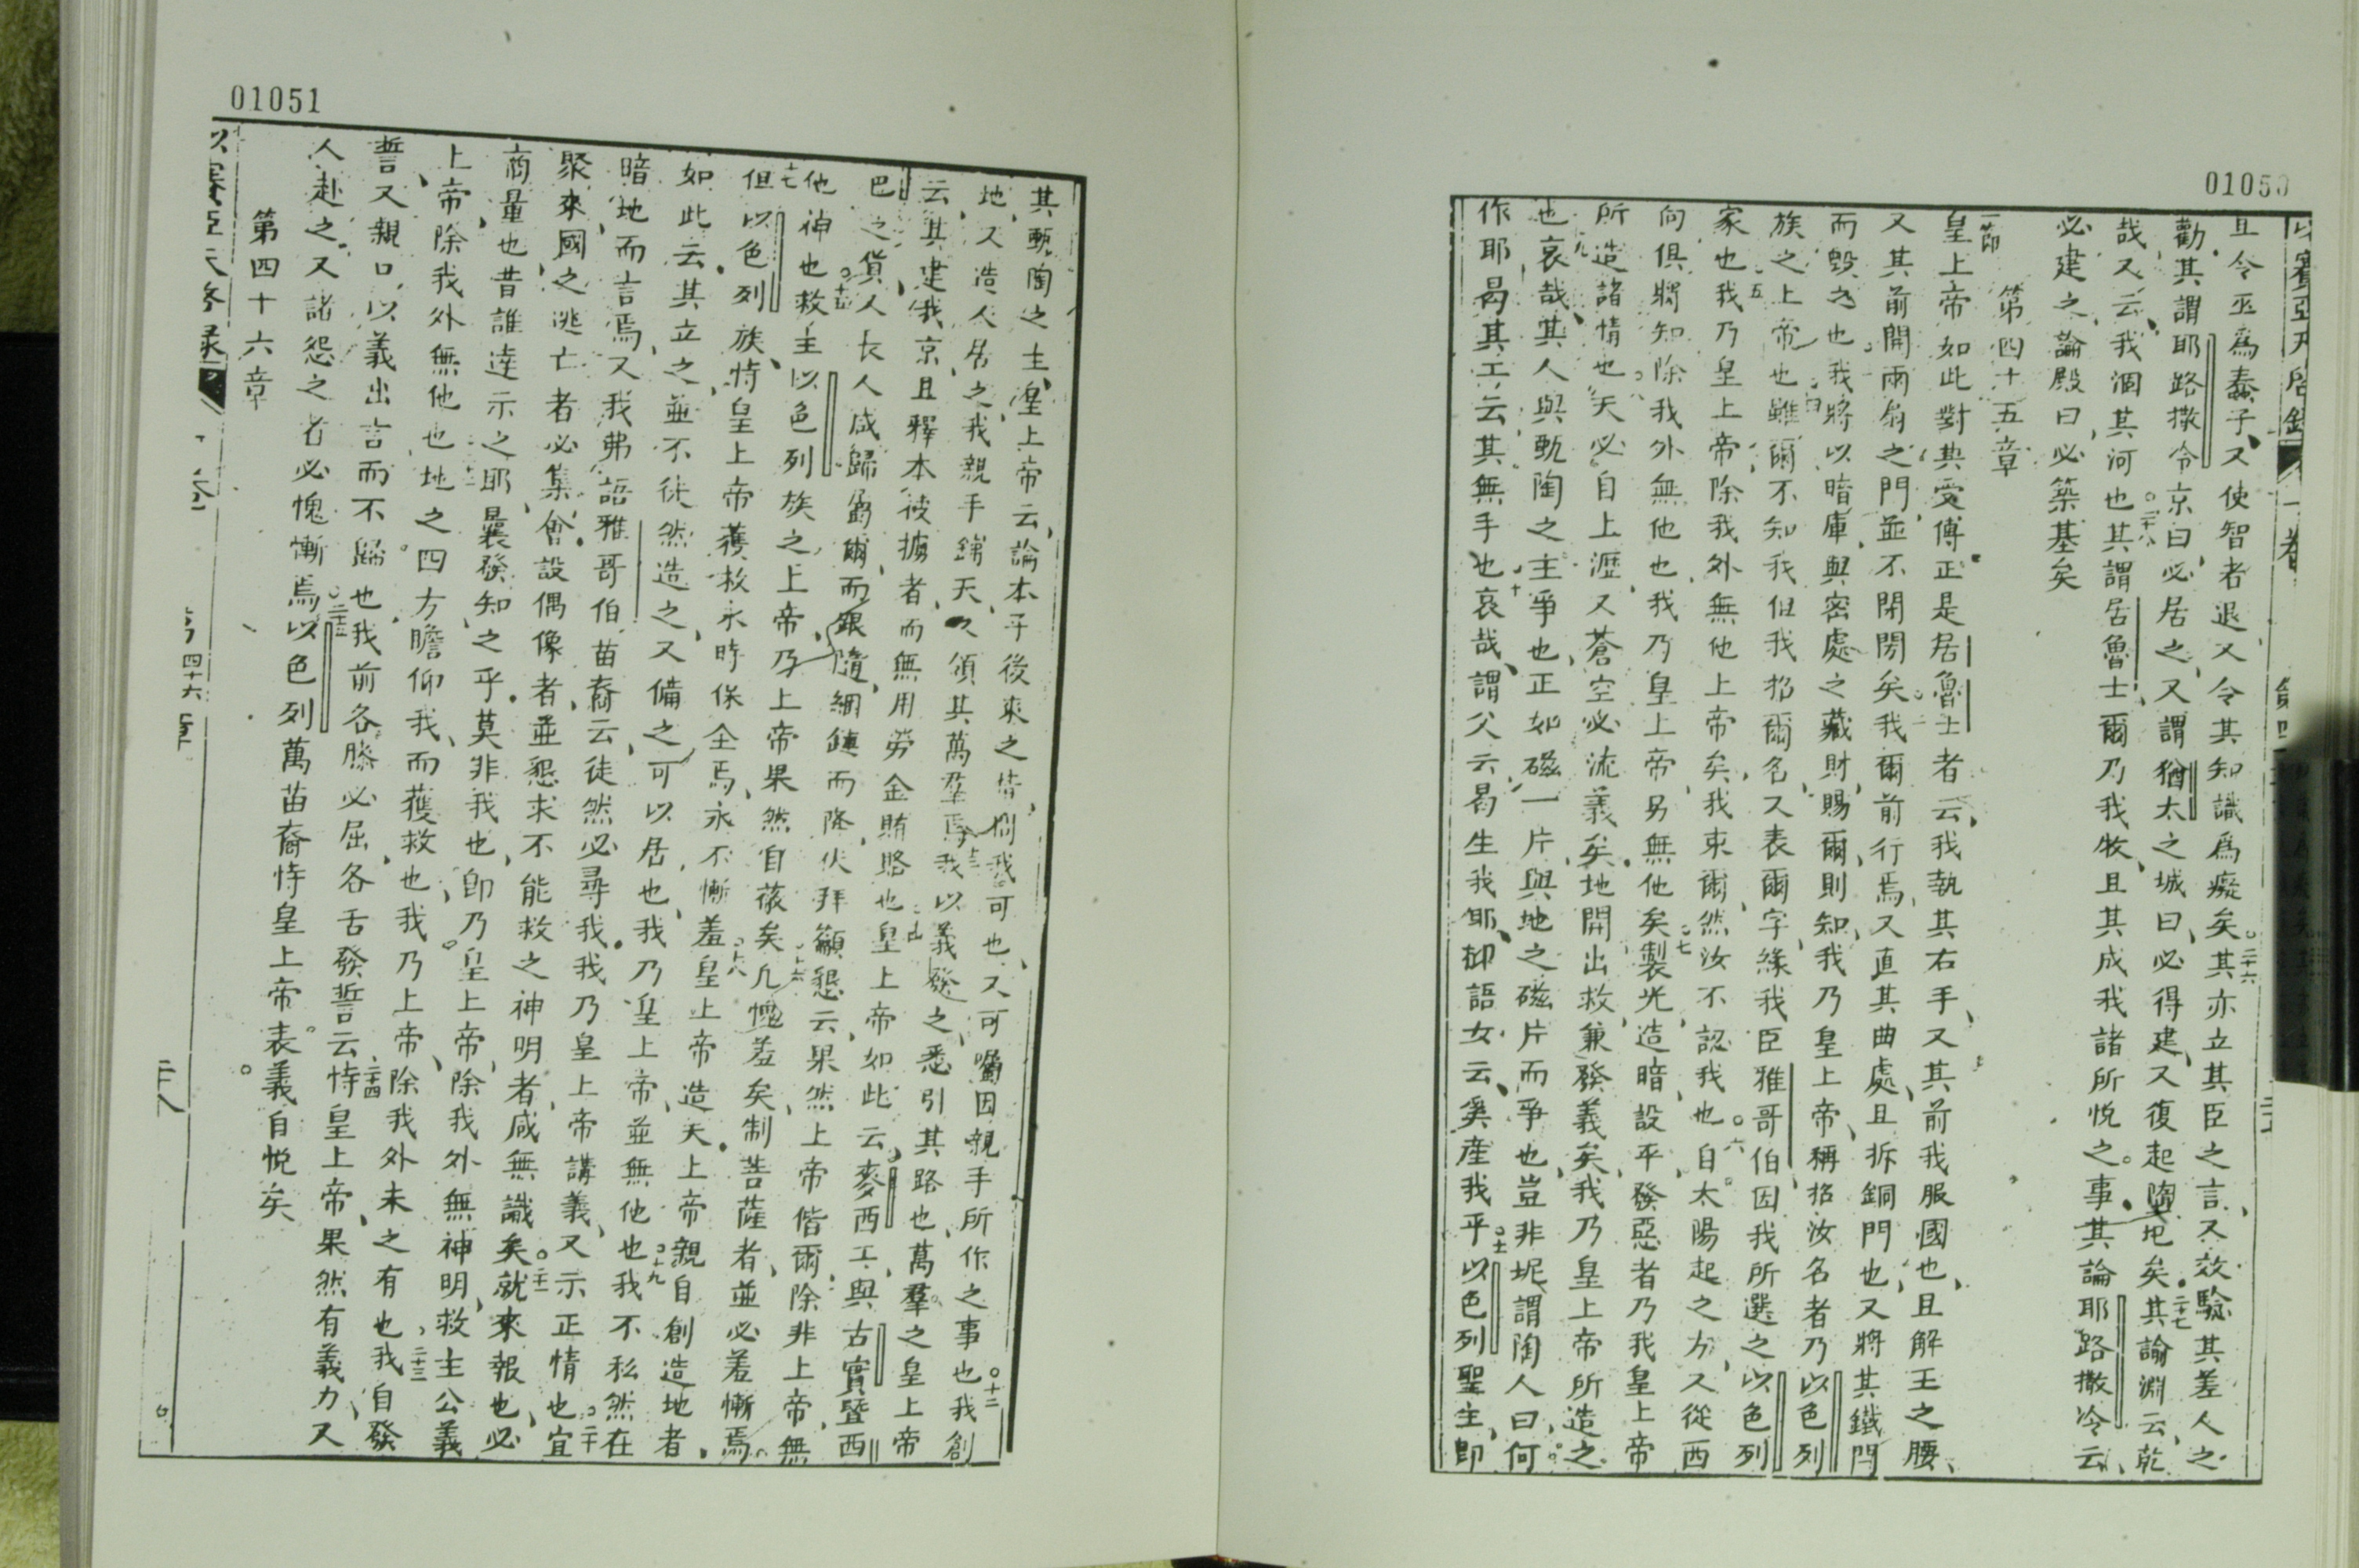 01050
且令巫爲蠢子又使智者退又令其知識爲癡矣二十六其亦立其臣之言又效驗其差人之
勸其謂耶路撒冷京曰必居之又謂猶太之城曰必得建又復起墮圯矣二十七其諭淵云乾
哉又云我涸其河也二十八其謂居魯士爾乃我牧且其成我諸所悅之事其論耶路撒冷云
必建之論殿曰必築基矣
第四十五章
一節皇上帝如此對其受傅正是居魯士者云我執其右手又其前我服國也且解王之腰
又其前開兩扇之門並不閉閞矣二我爾前行焉又直其曲處且拆銅門也又將其鐵閂
而毀之也三我將以暗庫與密處之藏財賜爾則知我乃皇上帝稱招汝名者乃以色列
族之上帝也四雖爾不知我但我招爾名又表爾字緣我臣雅哥伯因我所選之以色列
家也五我乃皇上帝除我外無他上帝矣我束爾然汝不認我也六自太陽起之方又從西
向俱將知除我外無他也我乃皇上帝另無他矣七製光造暗設平發惡者乃我皇上帝
所造諸情也八天必自上瀝又蒼空必流義矣地開出救兼發義矣我乃皇上帝所造之
也九哀哉其人與甄陶之主爭也正如磁一片與地之磁片而爭也豈非坭謂陶人曰何
作耶曷其工云其無手也十哀哉謂父云曷生我耶抑語女云奚產我乎十一以色列聖主即
01051
其甄陶之主皇上帝云論本子後來之情問我可也又可囑因親手所作之事也十二我創
地又造人居之我親手鋪天又須其萬羣焉十三我以義發之悉引其路也萬羣之皇上帝
云其建我京且釋本被擄者而無用勞金賄賂也十四皇上帝如此云麥西工與古實暨西
巴之貨人長人咸歸爾而跟隨細鏈而降伏拜籲懇云果然上帝偕爾除非上帝無
他神也十五救主以色列族之上帝乃上帝果然自蔽矣十六凡愧羞矣制菩薩者並必羞慚焉
十七但以色列族恃皇上帝獲救永時保全焉永不慚羞十八皇上帝造天上帝親自創造地者
如此云其立之並不徒然造之又備之可以居也我乃皇上帝並無他也十九我不私然在
暗地而言焉又我弗語雅哥伯苗裔云徒然必尋我我乃皇上帝講義又示正情也二十宜
聚來國之逃亡者必集會設偶像者並懇求不能救之神明者咸無識矣二十一就來報也必
商量也昔誰達示之耶曩發知之乎莫非我也即乃皇上帝除我外無神明救主公義
上帝除我外無他也二十二地之四方瞻仰我而獲救也我乃上帝除我外未之有也二十三我自發
誓又親口以義出言而不歸也我前各膝必屈各舌發誓云二十四恃皇上帝果然有義力又
人赴之又諸怨之者必愧慚焉二十五以色列萬苗裔恃皇上帝表義自悅矣
第四十六章